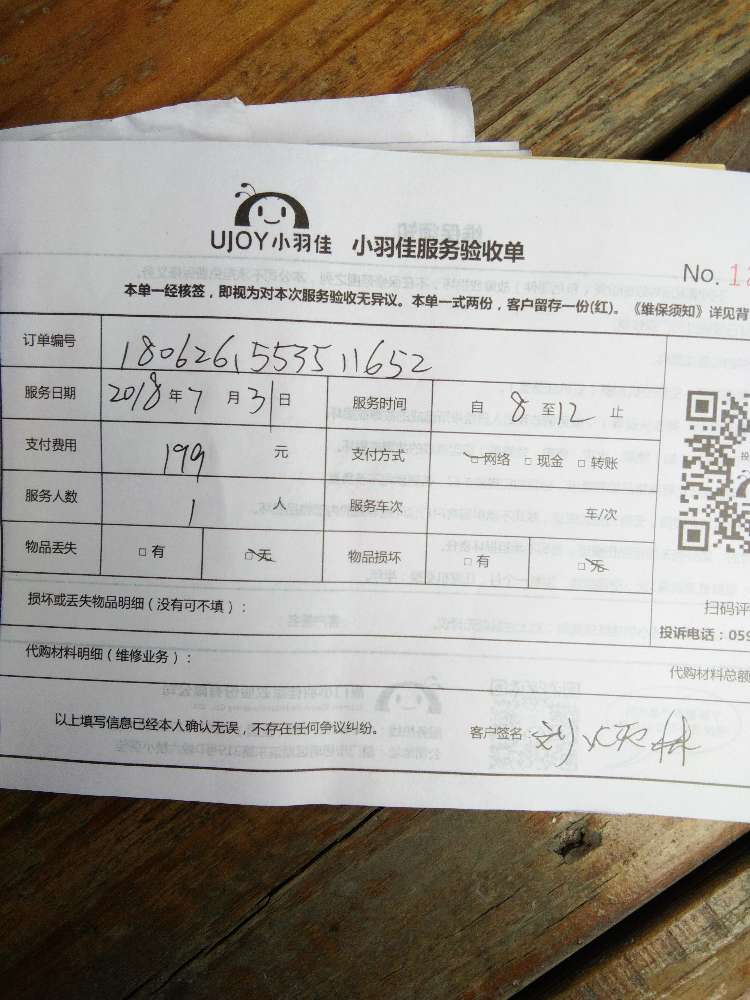 UJOY小羽佳 小羽佳服务验收单
No. 1
本单一经核签，即视为对本次服务验收无异议。本单一式两份，客户留存一份(红)。《维保须知》详见背
订单编号 180626155351​1652
服务日期 2018年7月31日 服务时间 自8至12止
支付费用 199元 支付方式 □网络 □现金 □转账
服务人数 1人 服务车次 车/次
物品丢失 □有 □无 物品损坏 □有 □无
扫码评
损坏或丢失物品明细（没有可不填）：
投诉电话：059
代购材料明细（维修业务）：
代购材料总额
以上填写信息已经本人确认无误，不存在任何争议纠纷。 客户签名：刘